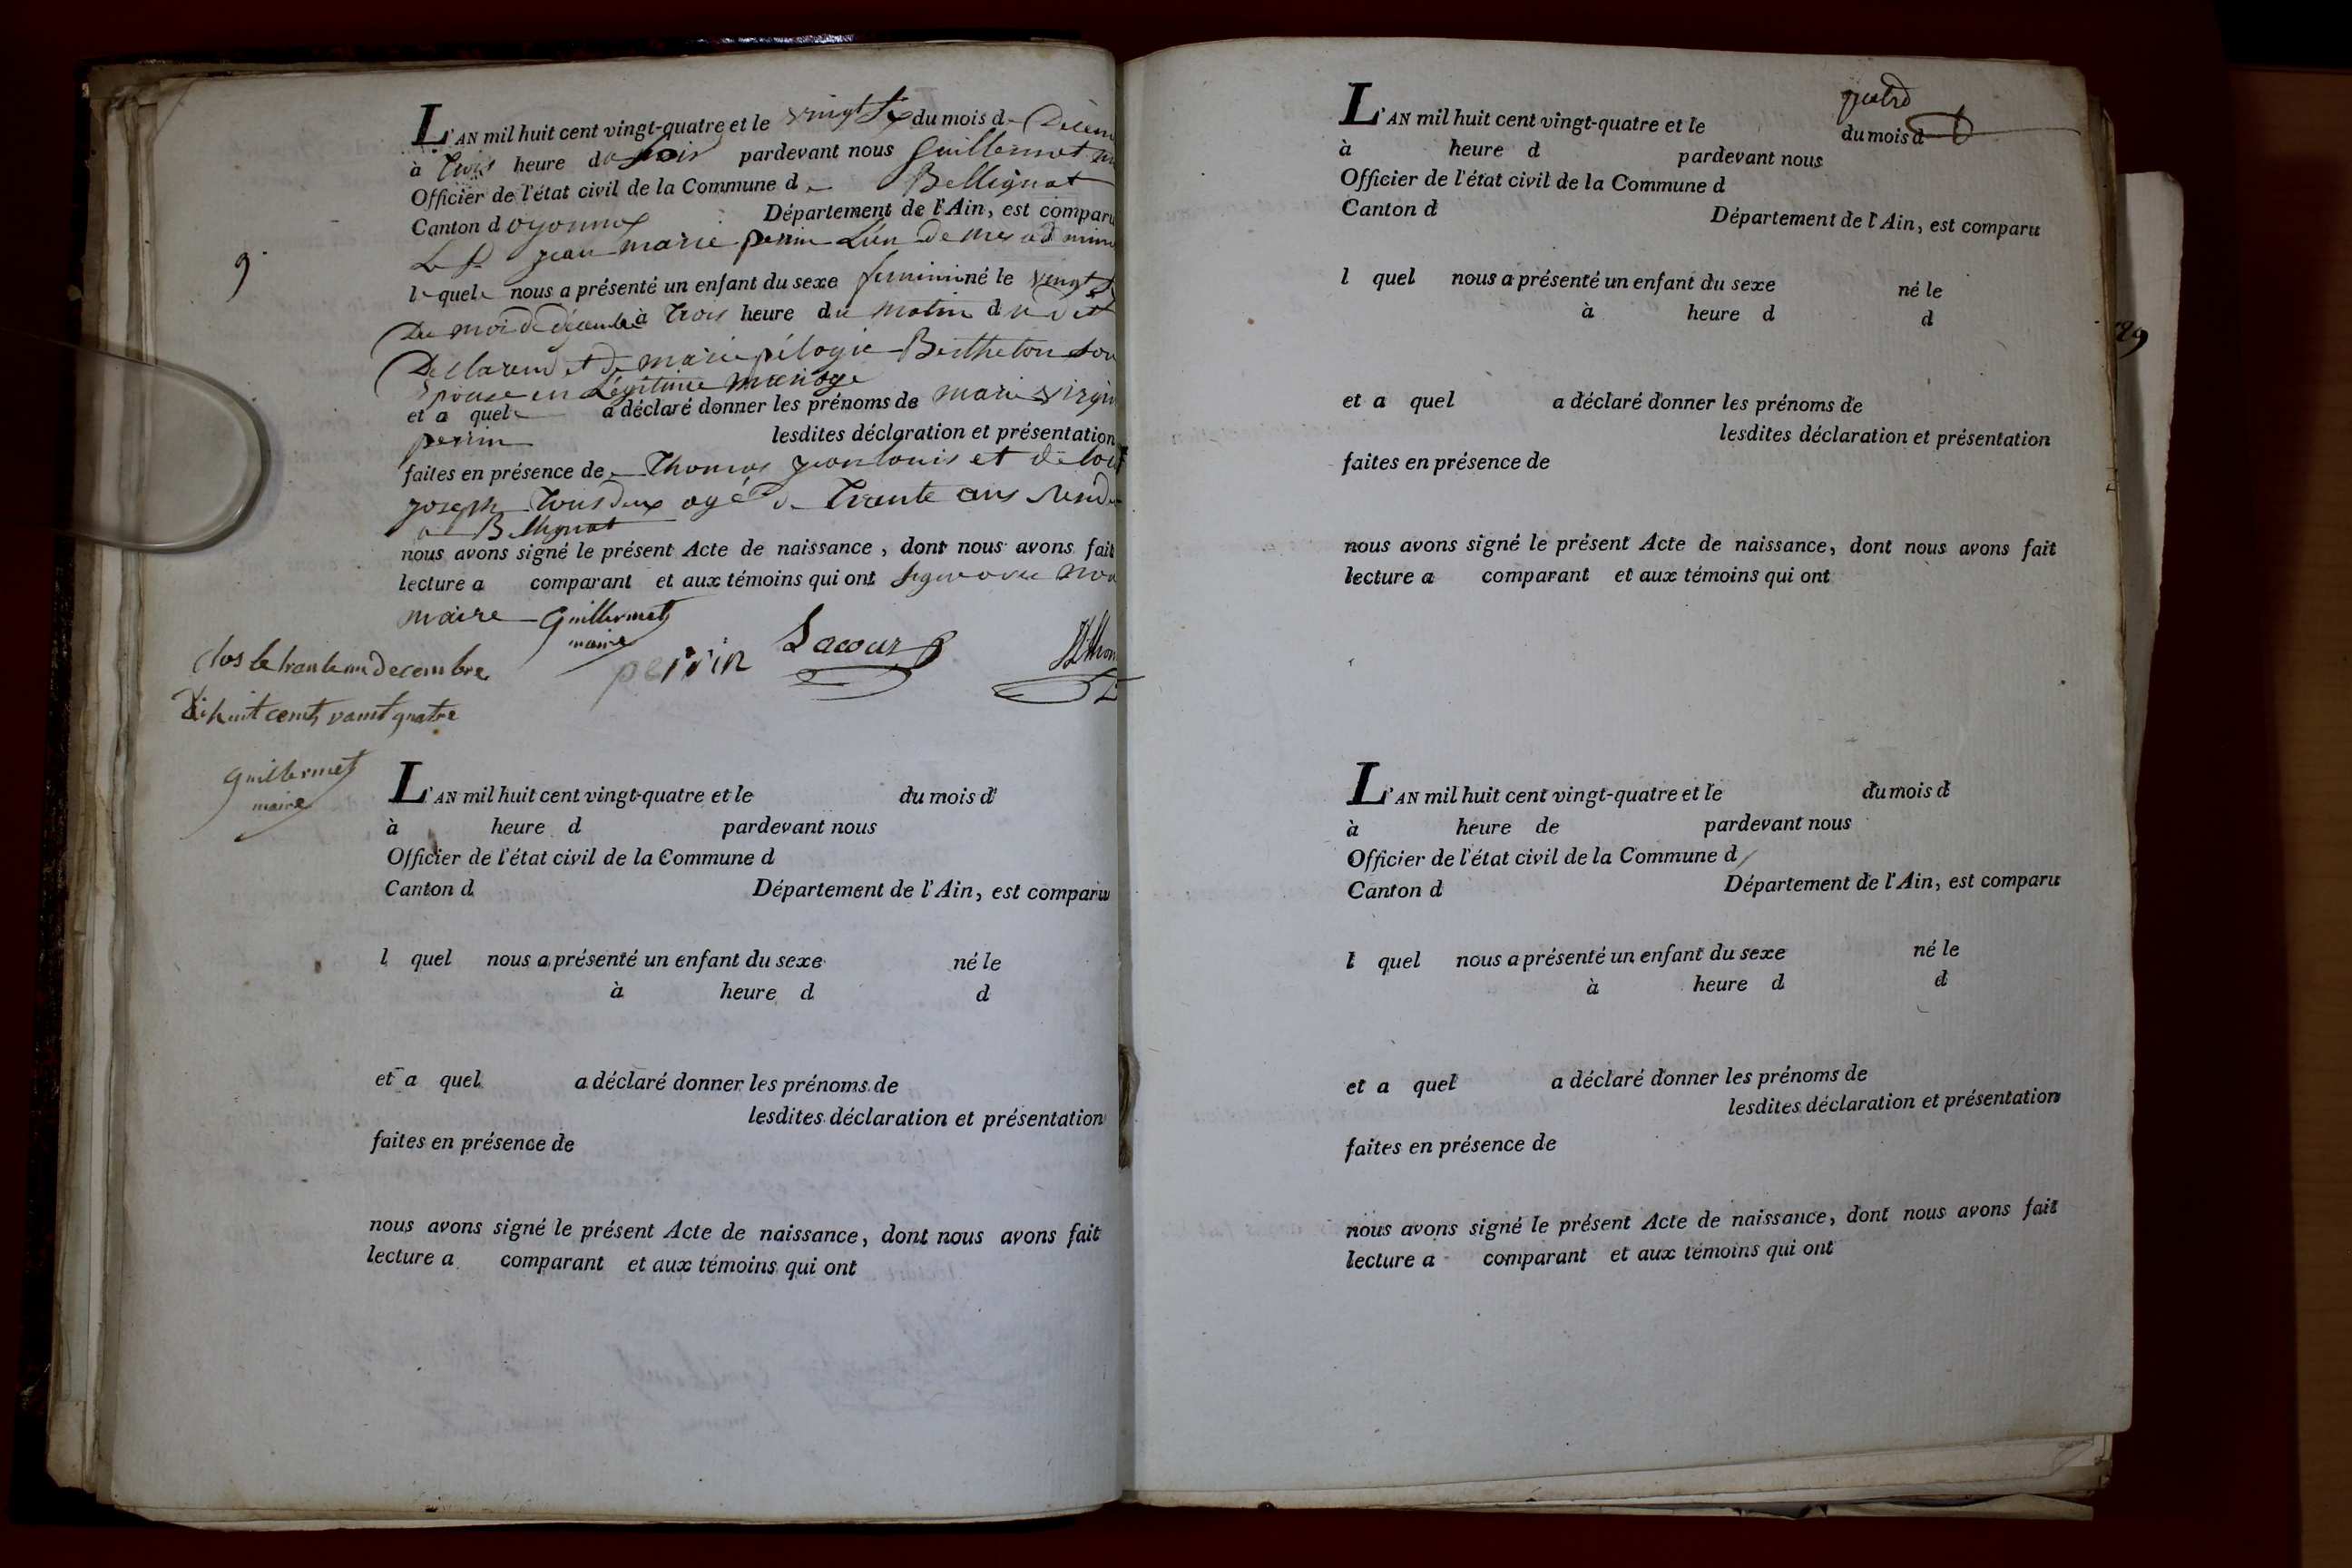 L'AN mil huit cent vingt-quatre et le vingt six du mois de Décem
à trois heure du soir pardevant nous Guillermet
Officier de l'état civil de la Commune de Bellignat
Canton d oyonnax Département de l'Ain, est comparu
Le Sr jean marie perrin L'un de mes admini
9.
lequel nous a présenté un enfant du sexe feminin né le vingt
Du moi de décembre à trois heure du matin du dit
Declarend et de marie pélogie Bertheton son
Epouse en Légitime mariage
et a quel a déclaré donner les prénoms de marie virgin
perrin lesdites déclaration et présentation
faites en présence de Thomas jean louis et de
joseph Tous deux agé de Trente ans
a Bellignat
nous avons signé le présent Acte de naissance, dont nous avons fait
lecture a comparant et aux témoins qui ont signe avec nou
maire Guillermet
maire
perrin Lacour
Clos le trante un decembre
Dihuit cents vaint quatre
Guillermet
maire
L'AN mil huit cent vingt-quatre et le du mois d
à heure d pardevant nous
Officier de l'état civil de la Commune d
Canton d Département de l'Ain, est comparu
l quel nous a présenté un enfant du sexe né le
à heure d d
et a quel a déclaré donner les prénoms de
lesdites déclaration et présentation
faites en présence de
nous avons signé le présent Acte de naissance, dont nous avons fait
lecture a comparant et aux témoins qui ont
L'AN mil huit cent vingt-quatre et le du mois d
à heure d pardevant nous
Officier de l'état civil de la Commune d
Canton d Département de l'Ain, est comparu
l quel nous a présenté un enfant du sexe né le
à heure d d
et a quel a déclaré donner les prénoms de
lesdites déclaration et présentation
faites en présence de
nous avons signé le présent Acte de naissance, dont nous avons fait
lecture a comparant et aux témoins qui ont
L'AN mil huit cent vingt-quatre et le du mois d
à heure de pardevant nous
Officier de l'état civil de la Commune d
Canton d Département de l'Ain, est comparu
l quel nous a présenté un enfant du sexe né le
à heure d d
et a quel a déclaré donner les prénoms de
lesdites déclaration et présentation
faites en présence de
nous avons signé le présent Acte de naissance, dont nous avons fait
lecture a comparant et aux témoins qui ont